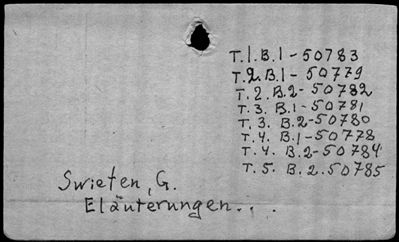 T.1.B.1-50783
T.2.B.1-50779
T.2.B.2-50782
T.3.B.1-50781
T.3.B.2-50780
T.4.B.1-50778
T.4.B.2-50784
T.5.B.2.50785
Swieten, G.
Eläuterungen...